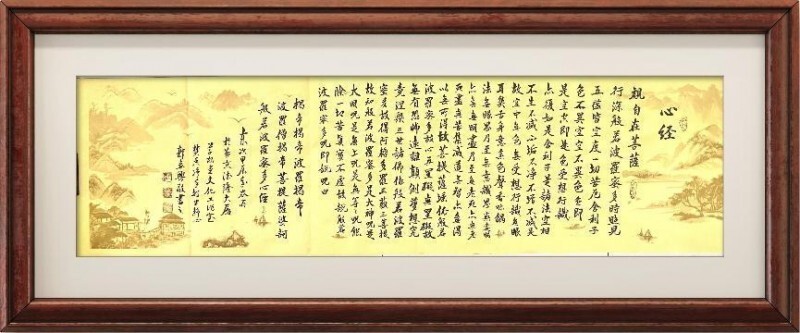 心经
觀自在菩薩
行深般若波羅蜜多時照見
五蘊皆空度一切苦厄舍利子
色不異空空不異色色即
是空空即是色受想行識
亦復如是舍利子是諸法空相
不生不滅不垢不淨不增不減是
故空中無色無受想行識無眼
耳鼻舌身意無色聲香味觸
法無眼界乃至無意識界無無明
亦無無明盡乃至無老死亦無老
死盡無苦集滅道無智亦無得
以無所得故菩提薩埵依般若
波羅蜜多故心無罣礙無罣礙故
無有恐怖遠離顛倒夢想究
竟涅槃三世諸佛依般若波羅
蜜多故得阿耨多羅三藐三菩提
故知般若波羅蜜多是大神咒是
大明咒是無上咒是無等等咒能
除一切苦真實不虛故說般若
波羅蜜多咒即說咒曰
揭帝揭帝波羅揭帝
波羅僧揭帝菩提薩婆訶
般若波羅蜜多心經
歲次甲辰